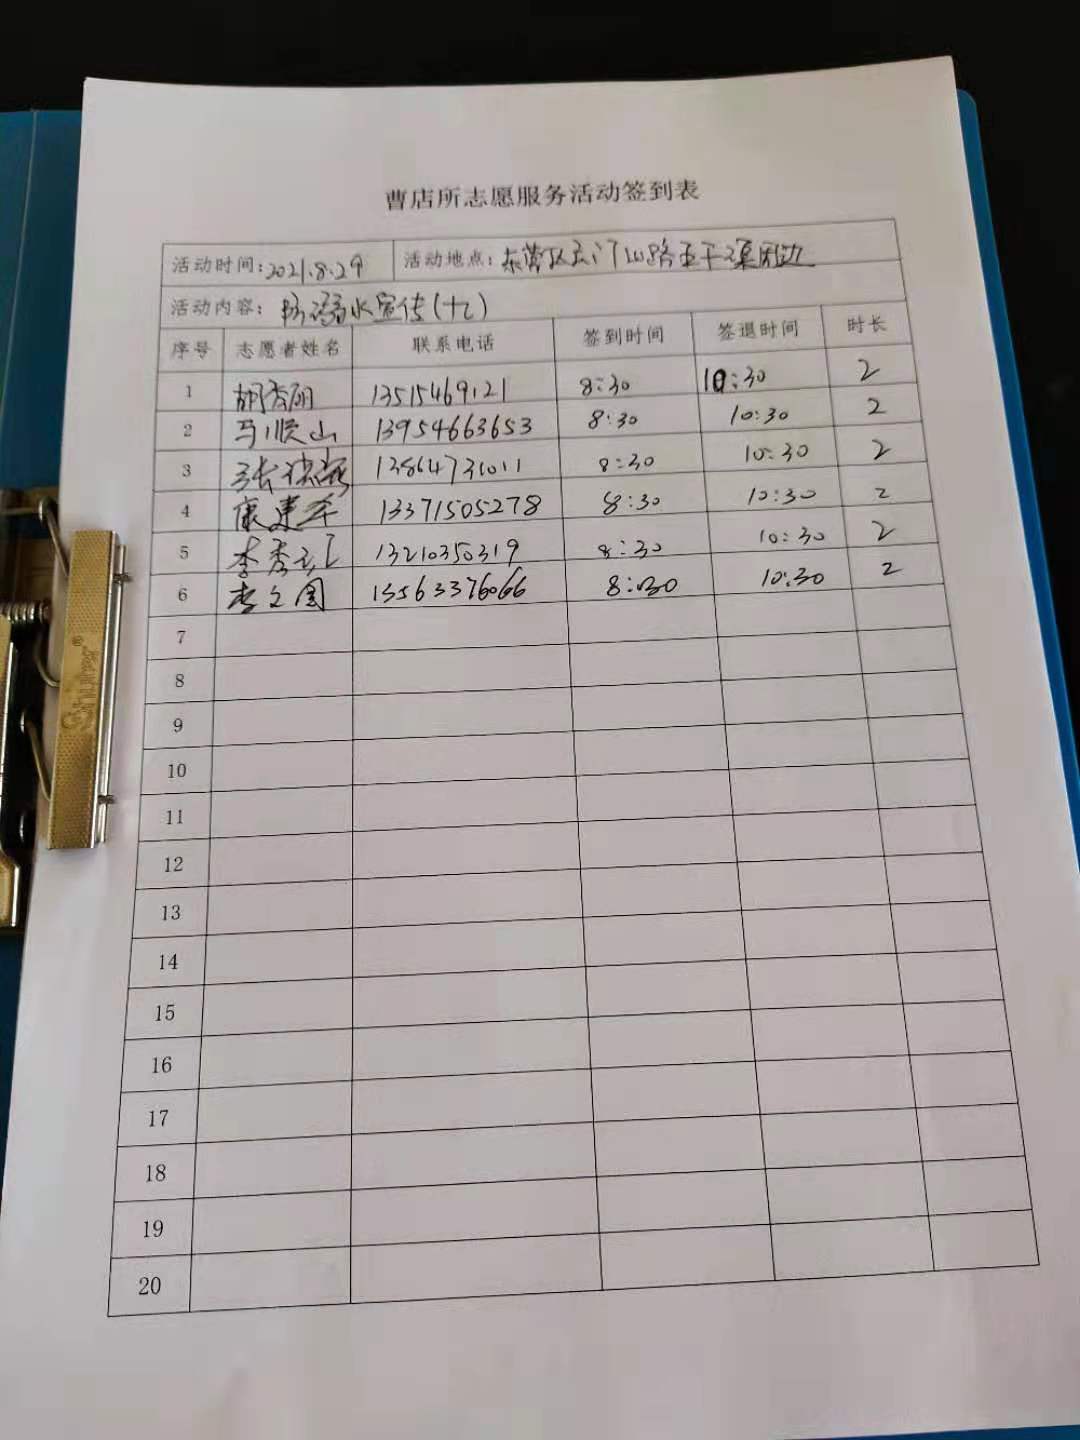 曹店所志愿服务活动签到表
活动时间:2021.8.29 活动地点:东营区天门山路五干渠周边
活动内容: 防溺水宣传(十九)
序号 志愿者姓名 联系电话 签到时间 签退时间 时长
1 胡秀丽 13515469121 8:30 10:30 2
2 马顺山 13954663653 8:30 10:30 2
3 张 13864731011 8:30 10:30 2
4 康建军 13371505278 8:30 10:30 2
5 李秀江 13210350319 8:30 10:30 2
6 李文国 13563376066 8:30 10:30 2
7
8
9
10
11
12
13
14
15
16
17
18
19
20
Shuter®